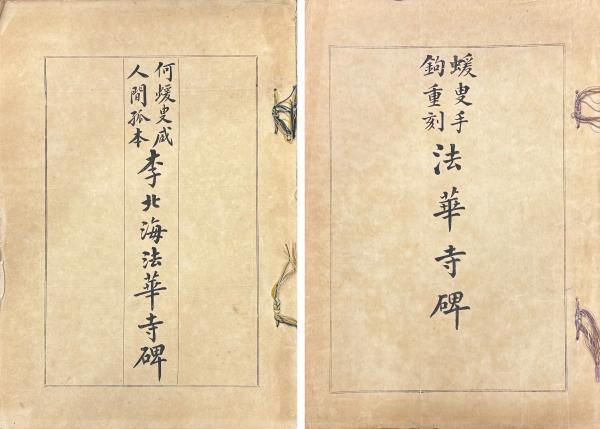 何煖叟咸
人間孤本
李北海法華寺碑
蝯叟手
鉤重刻
法華寺碑